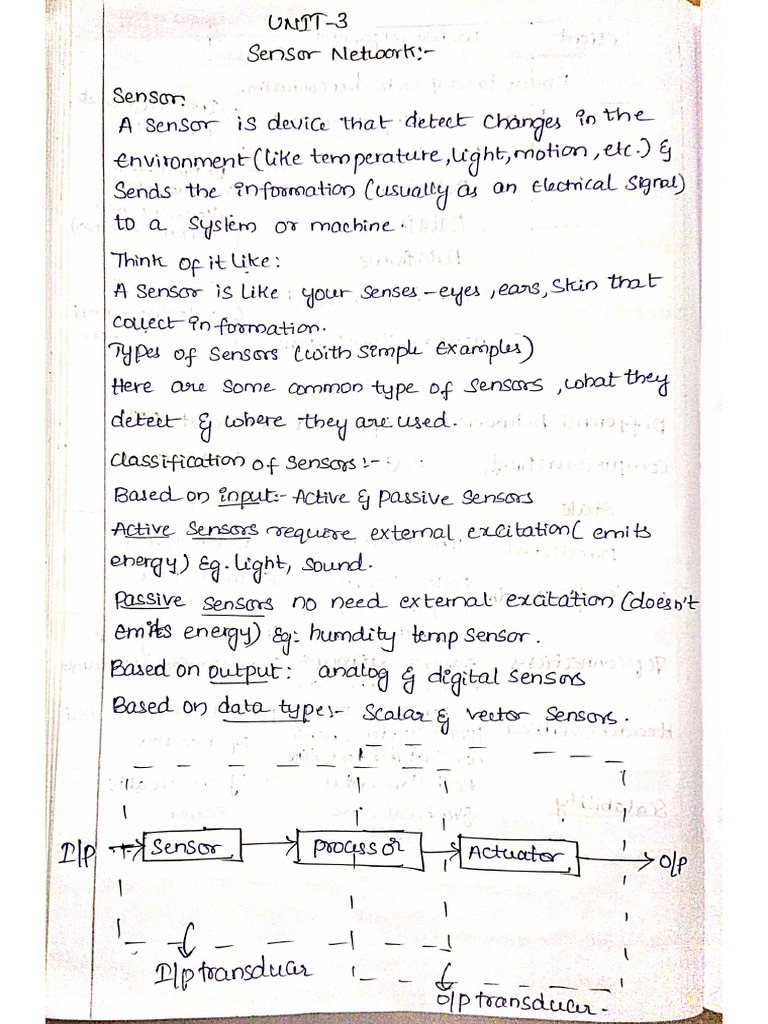 UNIT-3
Sensor Network:-
Sensor:
A sensor is device that detect changes in the
environment (like temperature, light, motion, etc.) &
Sends the information (usually as an Electrical Signal)
to a system or machine.
Think of it like:
A sensor is like your senses - eyes, ears, skin that
collect information.
Types of sensors (with simple examples)
Here are some common type of sensors, what they
detect & where they are used.
Classification of sensors:-
Based on input:- Active & passive sensors
Active sensors require external excitation (emits
energy) Eg. light, sound.
Passive sensors no need external excitation (doesn't
emits energy) Eg:- humdity temp sensor.
Based on output: analog & digital sensors
Based on data type:- scalar & vector sensors.
I/p Sensor processor Actuator O/p
I/p transducar
O/p transducer.